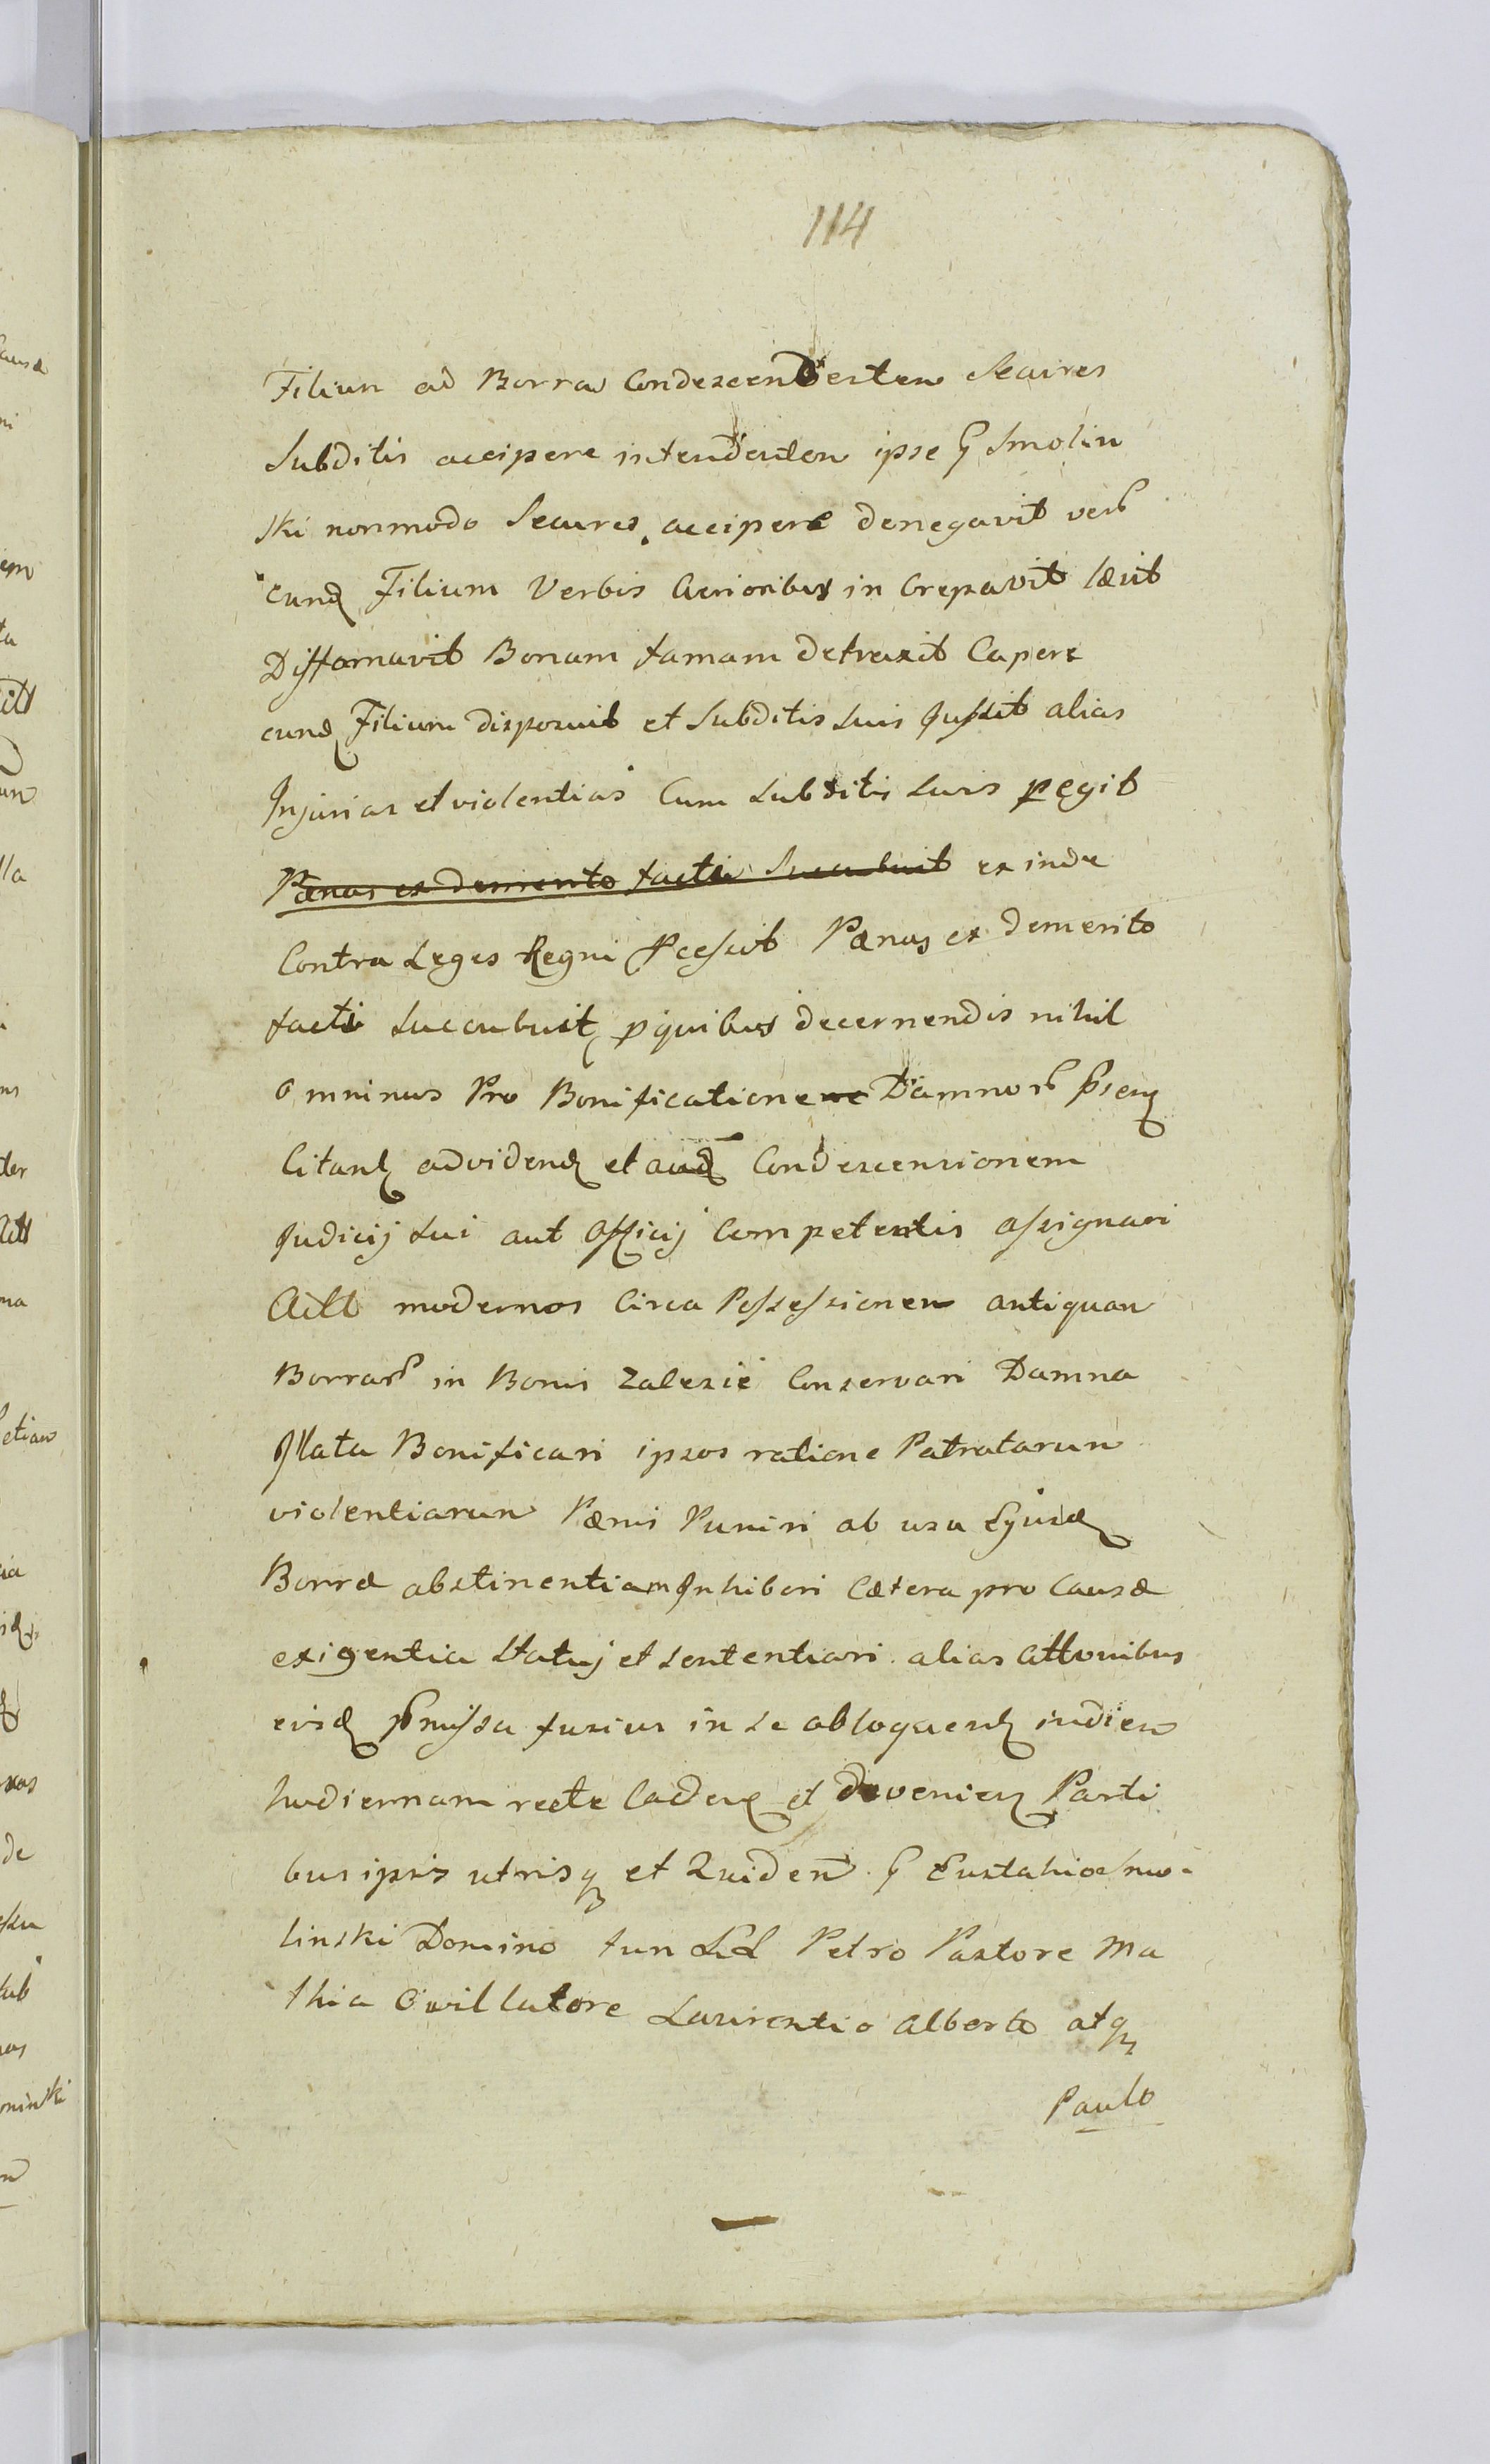 114
Filium ad Borras Condescendentem Secures
Subditis accipere intendentem ipse G Smolin
ski nonmodo Secures accipere denegavit verū
eundē Filium Verbis Acrioribus in Crepavit læsit
Diffamavit Bonam famam detraxit Capere
eundē Filium disposuit et Subditis suis Jussit alias
Injurias et violentias Cum Subditis suis pegit
Pænas ex demerito facti Succubuit ex inde
Contra Leges Regni Pcessit Pænas ex demerito
facti succubuit, p quibus decernendis nihil
ominus Pro Bonificatione Damnorū
Citant ad videnď et auď Condescensionem
Judicij sui aut Officij Competentis assignari
Actt modernos Circa Possessionem antiquam
Borrarū in Bonis Zalesie Conservari Damna
Illata Bonificari ipsos ratione Patratarum
violentiarum Pænis Puniri ab usu Ejusď
Borræ abstinentiam Inhiberi Cætera pro Causæ
exigentia Statuj et sententiari alias Attonibus
eisď pmissa fusius in se abloquenť in diem
hodiernam recte Cadeň et deveniený Parti
bus ipsis utrisq et Quidem G Eustahio Smo-
linski Domino tum LL Petro Pastore Ma
thia Owillatore Laurentio Alberto atq
Paulo